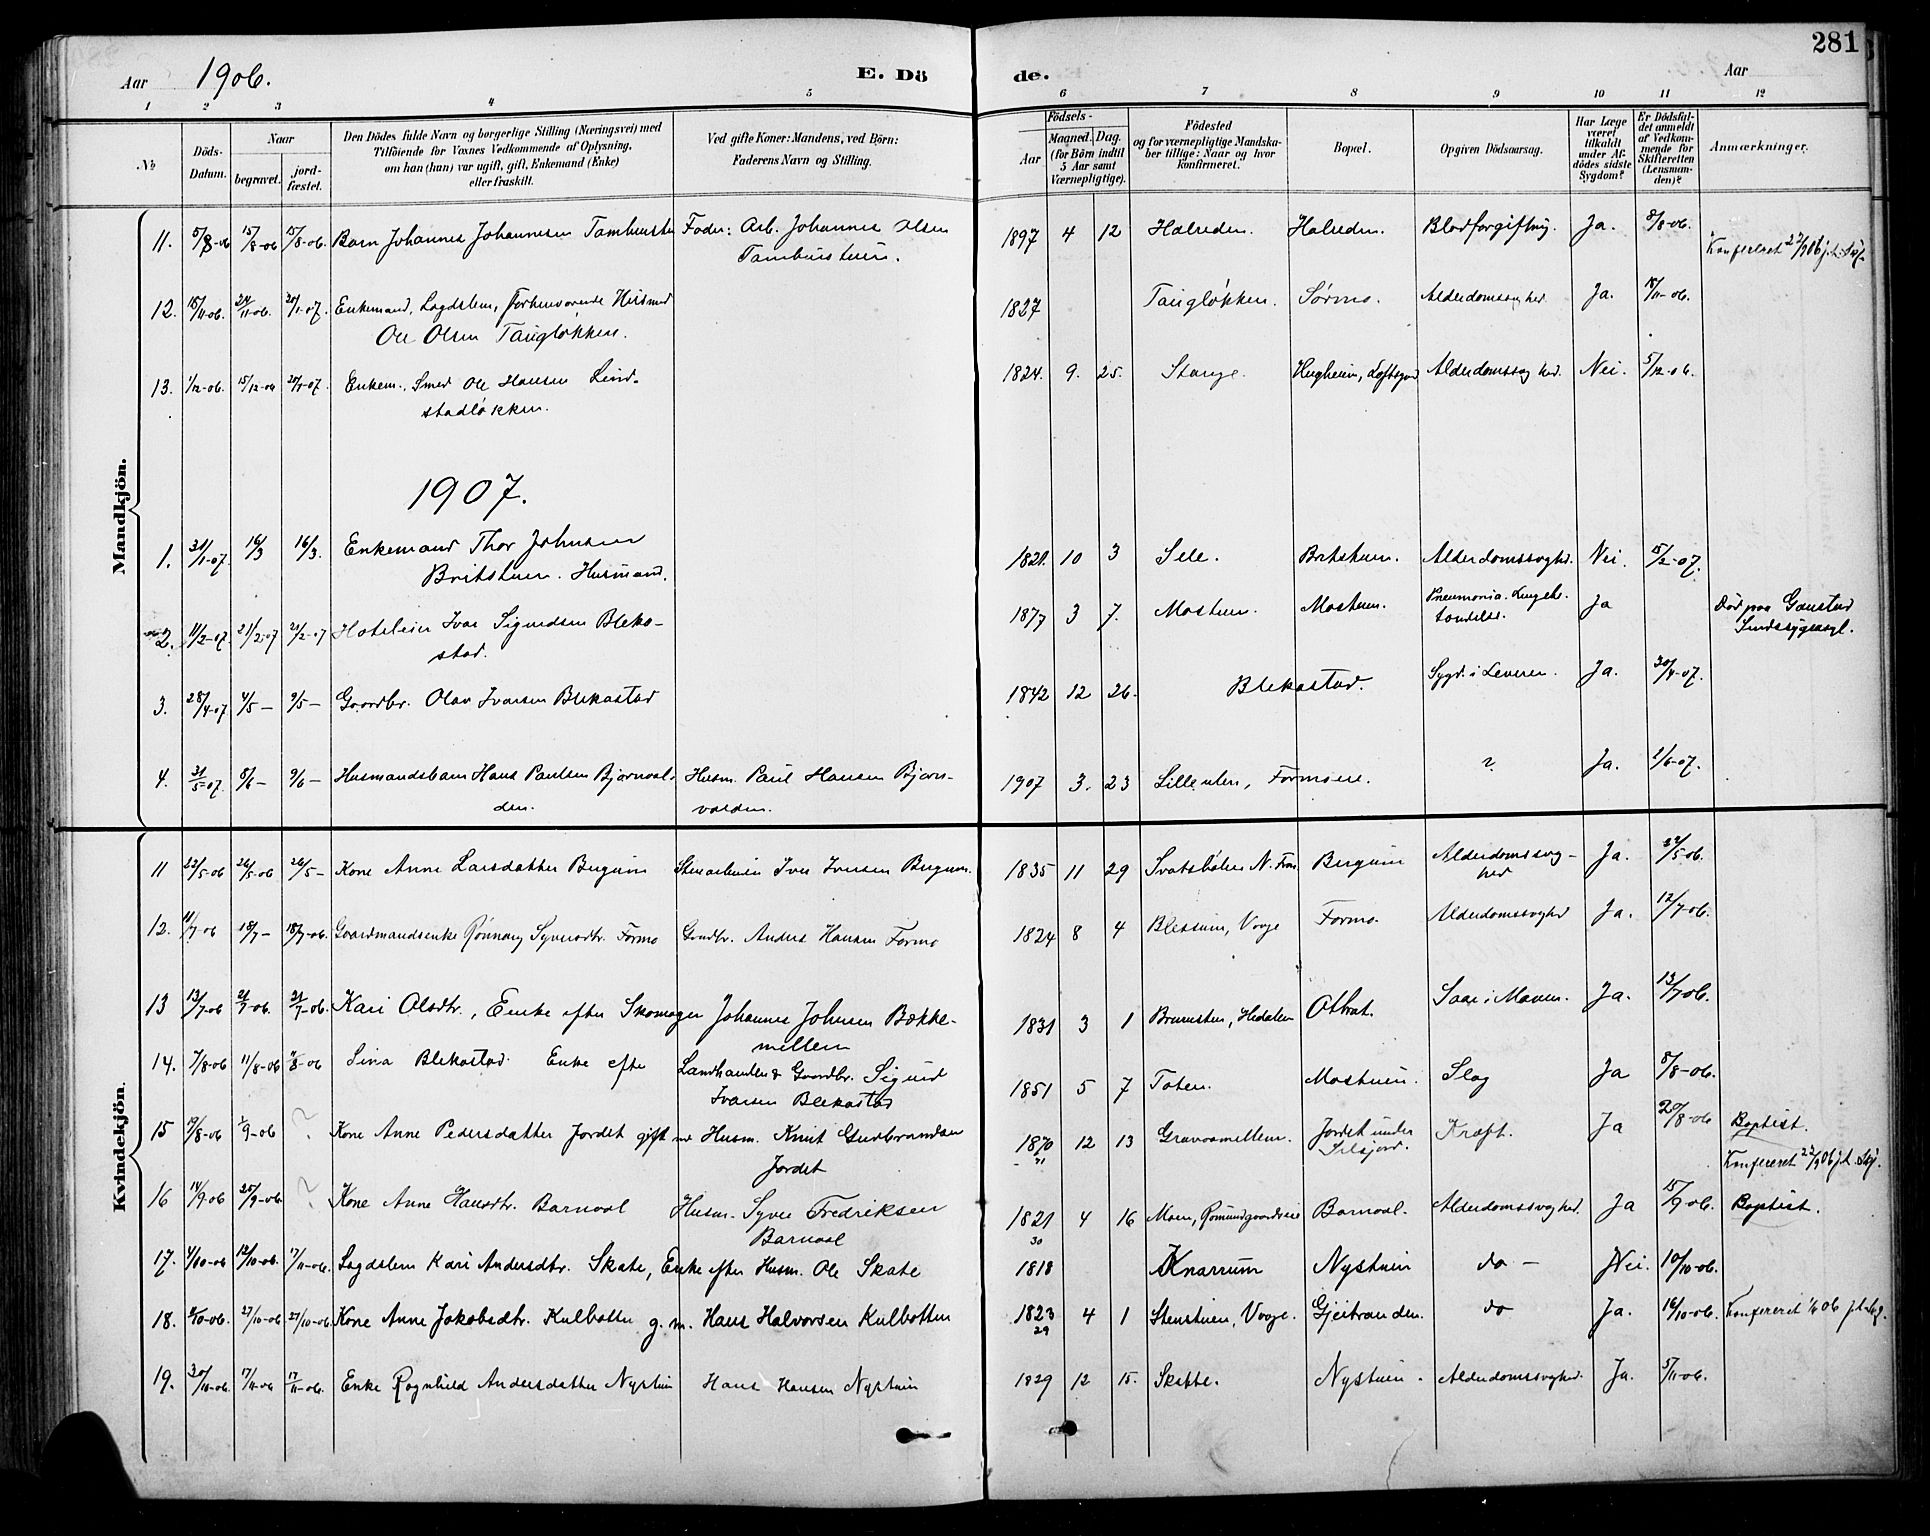 281
Aar 1906. E. Döde. Aar
1 2 3 4 5 6 7 8 9 10 11 12
No
Döds-Datum.
Naar
begravet.
jord-fæstet.
Den Dödes fulde Navn og borgerlige Stilling (Næringsvei) med
Tilföiende for Voxnes Vedkommende af Oplysning,
om han (hun) var ugift, gift, Enkemand (Enke)
eller fraskilt.
Ved gifte Koner: Mandens, ved Börn:
Faderens Navn og Stilling.
Födsels-
Aar
Magned. Dag.
(for Börn indtil
5 Aar samt
Værnepligtige).
Födested
og for værnepligtige Mandska-
ber tillige: Naar og hvor
konfirmeret.
Bopæl.
Opgiven Dödsaarsag.
Har Læge
været
tilkaldt
under Af-
dödes sidste
Sygdom?
Er Dödsfal-
det anmeldt
af Vedkom-
mende for
Skifteretten
(Lensman-
den)?
Anmærkninger.
Mandkjön.
11. 5/8-06 15/8-06 15/8-06. Barn Johannes Johannesen Tamburstu Fader: Arb. Johannes Olsen 1897 4 12 Halreden. Halreden. Blodforgiftnig. Ja. 8/8-06.
Tamburstuen. Konfereret 27/9 06
12. 15/11-06. 24/11-06. 20/1-07. Enkemand, Lægdslem, Forhenværende Husmd 1827 Taugløkken. Sørmo. Alderdomssvaghed Ja. 18/11-06.
Ole Olsen Taugløkken.
13. 1/12-06. 15/12-06 20/1-07. Enkem. Smed Ole Hansen Lind- 1824. 9. 25. Stange. Hugheim, Loftsgrd Alderdomssvaghed. Nei. 5/12-06.
stadløkken.
1907.
1. 31/1-07. 16/3 16/3. Enkemand Thor Johnsen 1821. 10 3 Sell. Britstuen. Alderdomssvaghed. Nei. 15/2-07.
Britstuen. Husmand.
2. 11/2-07. 21/2-07 21/2-07 Hoteleier Ivar Sigurdsen Bleka- 1877 3 7. Mostuen. Mostuen. Pneumonia. Lungebe- Ja Död paa Gaustad
stad. tændelse. Sindssygeasyl.
3. 28/4-07 4/5 - 9/5 - Gaardbr. Olav Ivarsen Blekastad 1842 12 26. Blekastad. Sygd. i Leveren. Ja. 30/4-07.
4. 31/5-07. 8/6 - 9/6 - Husmandsbarn Hans Paulsen Bjørnvol- Husm. Paul Hansen Bjørn- 1907 3. 23 Lilleulen, Formoeie. ? Ja. 1/6-07.
den. volden.
Kvindekjön.
11 22/5-06 26/5-06 26/5 - Kone Anne Larsdatter Bergum Stenarbeider Iver Iversen Bergum. 1835 11 29 N. Fron. Bergum Alderdomssvag- Ja. 22/5-06.
hed
12. 11/7-06 18/7 - 18/7-06. Gaardmandsenke Rønnaug Syverdtr. Formo Gaardbr. Anders Hansen Formo 1824 8 4 Blessum, Vaage Formo. Alderdomssvaghed Ja. 12/7-06.
13 13/7-06 21/7-06. 21/7-06. Kari Olsdtr., Enke efter Skomager Johannes Johnsen Bække- 1831 3 1 Brunstuen, Hedalen Ottrat. Saar i Maven. Ja. 13/7-06.
mellem
14. 7/8-06 11/8-06 11/8-06 Sina Blekastad. Enke efter Landhandler & Gaardbr. Sigurd 1851 5 7 Toten. Mostuen. Slag Ja 8/8-06.
Ivarsen Blekastad
15 17/8-06 1/9-06 ? Kone Anne Pedersdatter Jordet gift m Husm. Knut Gudbrandsen 1870 12 13 Gravaamellem. Jordet under Kræft. Ja 20/8-06 Baptist.
Jordet 71 Selsjord. Konfereret 22/9 06
16 14/9-06 25/9-06. ? Kone Anne Hansdtr. Barnaal Husm. Syver Fredriksen 1821 4 16 Moen, Romundgaardseie Barnaal. Alderdomssvaghed. Ja 15/9-06. Baptist.
Barnaal 30
17. 4/10-06 12/10-06. 17/11-06. Lægdslem Kari Andersdtr. Skate, Enke efter Husm. Ole Skate 1818 Knarrum Nystuen do - Nei. 10/10-06.
18. 27/10-06 27/10-06 Kone Anne Jakobsdtr. Kulbotten g. m. Hans Halvorsen Kulbotten 1823 4 1 Stenstuen, Vaage. Gjeitranden. do Ja. 16/10-06. Konfereret
29
19. 30/10-06. 17/11-06 17/11-06. Enke Ragnhild Andersdatter Nystuen Hans Hansen Nystuen 1829 12 15. Skatte. Nystuen. Alderdomssvaghed. Ja. 5/11-06.